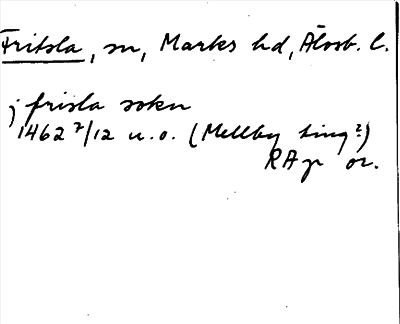 Fritsla, sn, Marks hd, Älvsb. l.
j frisla sokn
1462 2/12 u.o. (Mellby ting?)
RAp or.